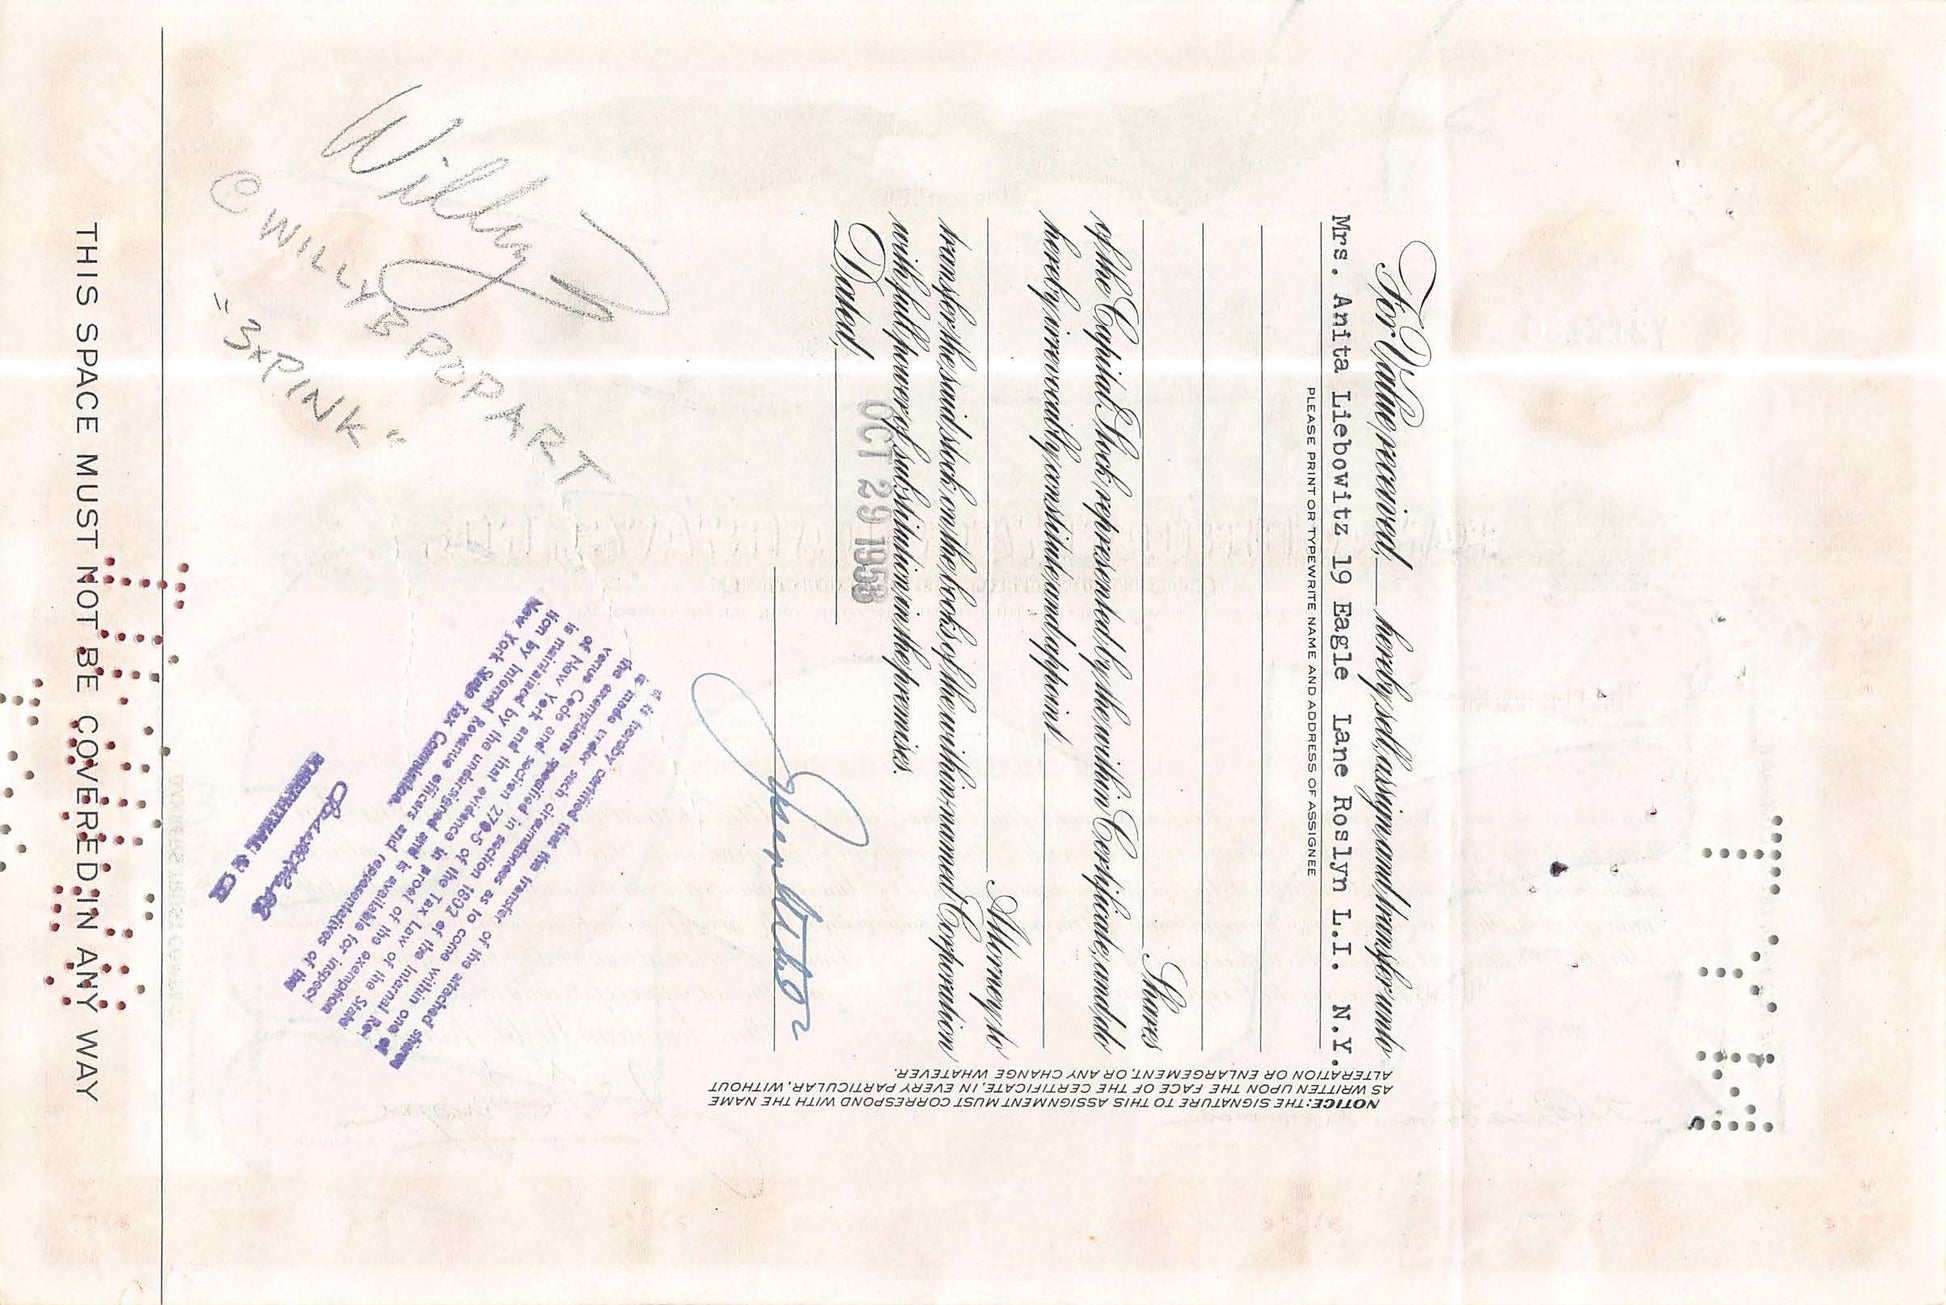 For Value received, hereby sell, assign and transfer unto
Mrs. Anita Liebowitz 19 Eagle Lane Roslyn L.I. N.Y.
PLEASE PRINT OR TYPEWRITE NAME AND ADDRESS OF ASSIGNEE
Shares
of the Capital Stock represented by the within Certificate, and do
hereby irrevocably constitute and appoint
Attorney to
transfer the said stock on the books of the within-named Corporation
with full power of substitution in the premises.
Dated,
OCT 29 1958
NOTICE: THE SIGNATURE TO THIS ASSIGNMENT MUST CORRESPOND WITH THE NAME
AS WRITTEN UPON THE FACE OF THE CERTIFICATE, IN EVERY PARTICULAR, WITHOUT
ALTERATION OR ENLARGEMENT, OR ANY CHANGE WHATEVER.
It is hereby certified that the transfer of the attached shares
is made under such circumstances as to come within one of
the exemptions specified in section 1802 of the Internal Re-
venue Code and section 270-5 of the Tax Law of the State
of New York and that evidence in proof of the exemption
is maintained by the undersigned and is available for inspec-
tion by Internal Revenue officers and representatives of the
New York State Tax Commission.
Willy
© WILLYBPOPART
"3xPINK"
THIS SPACE MUST NOT BE COVERED IN ANY WAY